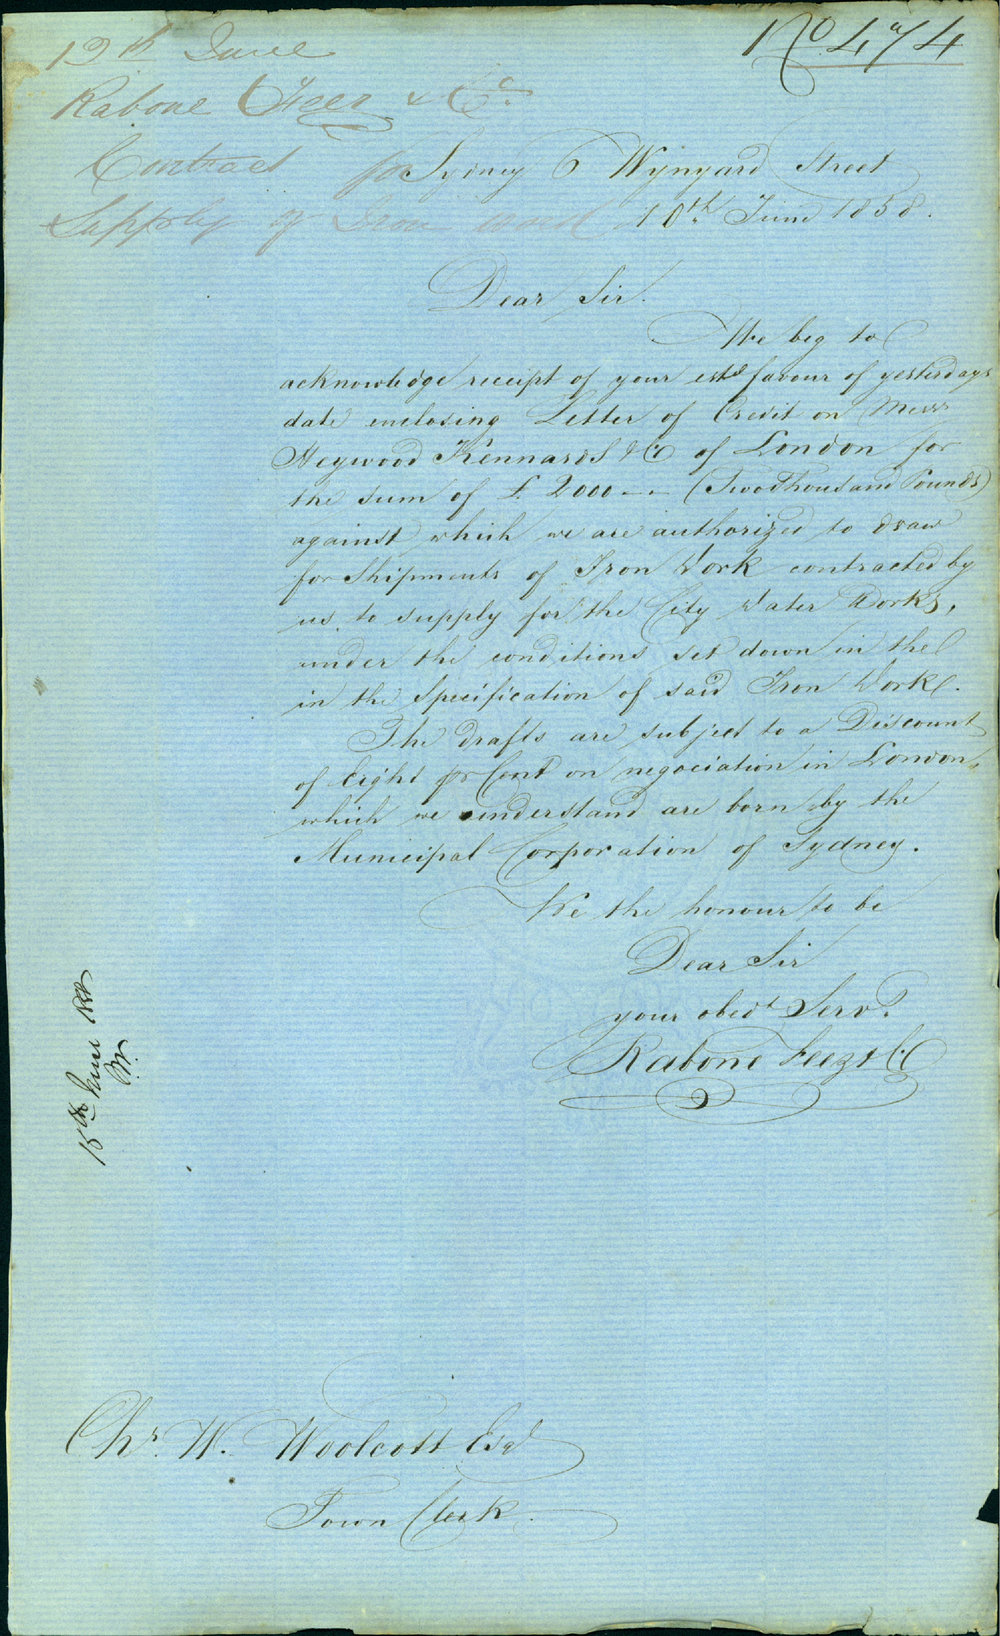 No 474
12th June
Rabone Feez & Co.
Contract for
Supply of Iron work
Sydney 6 Wynyard Street
10th June 1858.
Dear Sir.
We beg to
acknowledge receipt of your estd favour of yesterdays
date enclosing Letter of Credit on Messrs
Heywood Kennards & Co of London for
the sum of £2000 -- (Two Thousand Pounds)
against which we are authorized to draw
for Shipments of Iron Work contracted by
us to supply for the City Water Works,
under the conditions set down in the
in the Specification of said Iron Work.
The drafts are subject to a Discount
of Eight pr Cent on negociation in London,
which we understand are born by the
Municipal Corporation of Sydney.
We the honour to be
Dear Sir
your obedt Servt.
Rabone Feez & Co
15th June
Chs. W. Woolcott Esqr
Town Clerk.